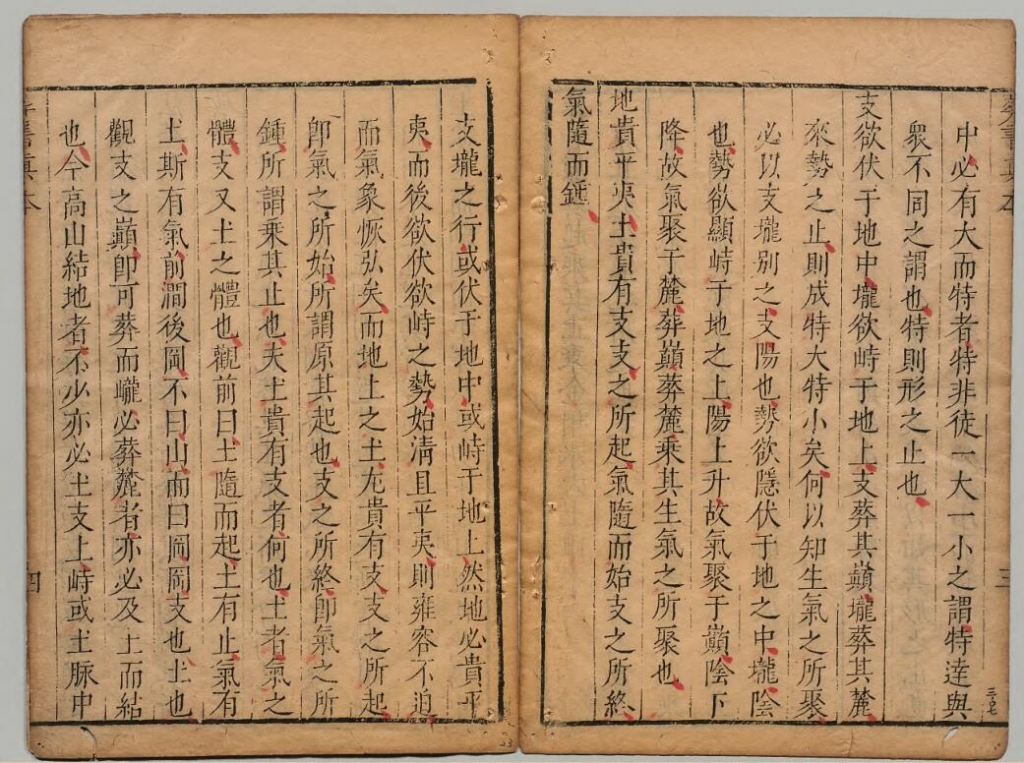 葬書真本 三
中必有大而特者特非徒一大一小之謂特達與
衆不同之謂也特則形之止也
支欲伏于地中壠欲峙于地上支葬其巔壠葬其麓
來勢之止則成特大特小矣何以知生氣之所聚
必以支壠別之支陽也勢欲隱伏于地之中壠陰
也勢欲顯峙于地之上陽上升故氣聚于巔陰下
降故氣聚于麓葬巔葬麓乘其生氣之所聚也
地貴平夷土貴有支支之所起氣隨而始支之所終
氣隨而鍾
支壠之行或伏于地中或峙于地上然地必貴平
夷而後欲伏欲峙之勢始清且平夷則雍容不迫
而氣象恢弘矣而地上之土尤貴有支支之所起
卽氣之所始所謂原其起也支之所終卽氣之所
鍾所謂乘其止也夫土貴有支者何也土者氣之
體支又土之體也觀前曰土隨而起土有止氣有
土斯有氣前澗後岡不曰山而曰岡岡支也土也
觀支之巔卽可葬而巄必葬麓者亦必及土而結
也今高山結地者不少亦必土支上峙或土脉中
葬書真本 四